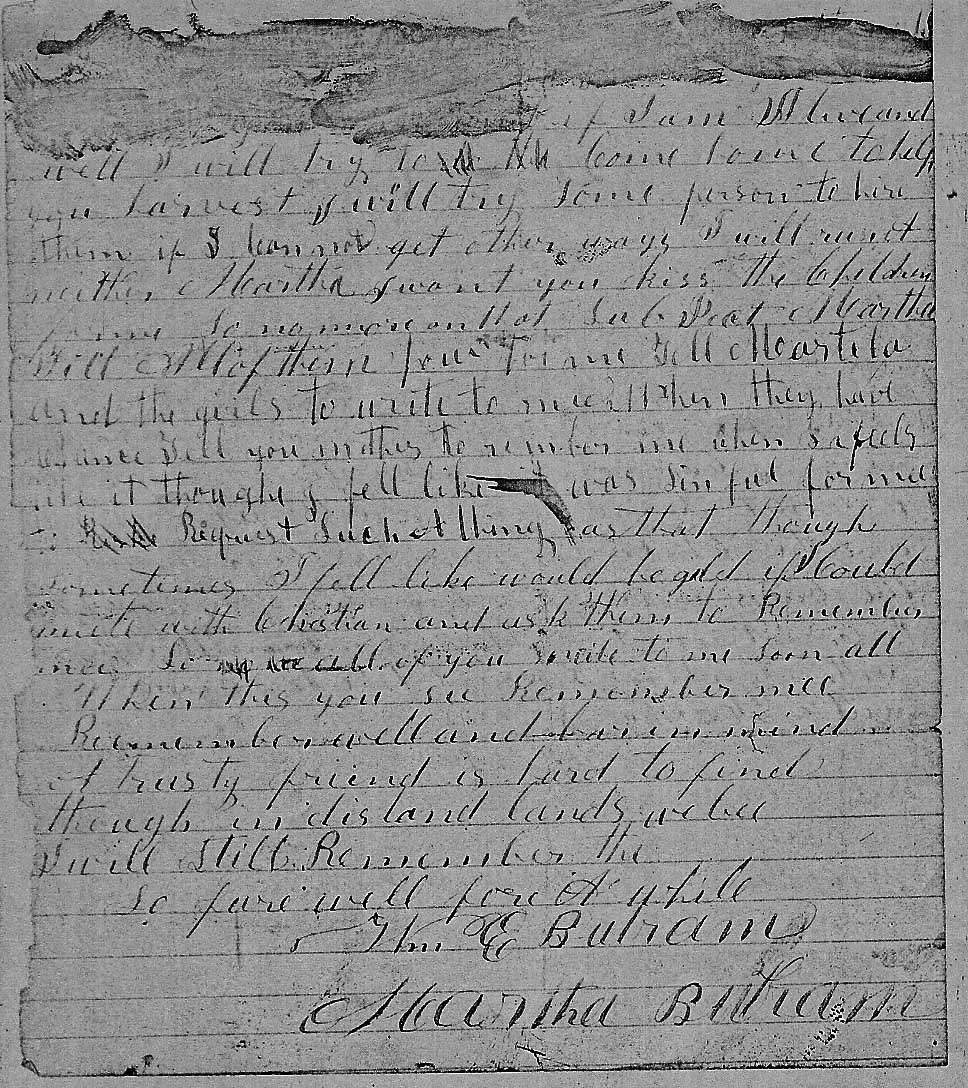 if I am Alive and
well I will try to come home to help
you harvest I will try some person to hire
them if I cannot get other ways I will
neither Martha I want you kiss the Children
for me So no more on that Martha
Tell All of them for me Tell
and the girls to write to mee When they have
chance Tell you mother to rember me when
it though I fell like it was sinful for mee
Request Such A thing as that though
sometimes I fell like would be gld if I Could
unite with Christian and ask them to Remember
mee So all of you write to me soon all
When this you see Remember mee
Reemember well and bar in mind
A trusty friend is hard to find
though in distand lands we bee
I will Still Remember the
So fare well for A while
Wm E Butram
Martha Butram